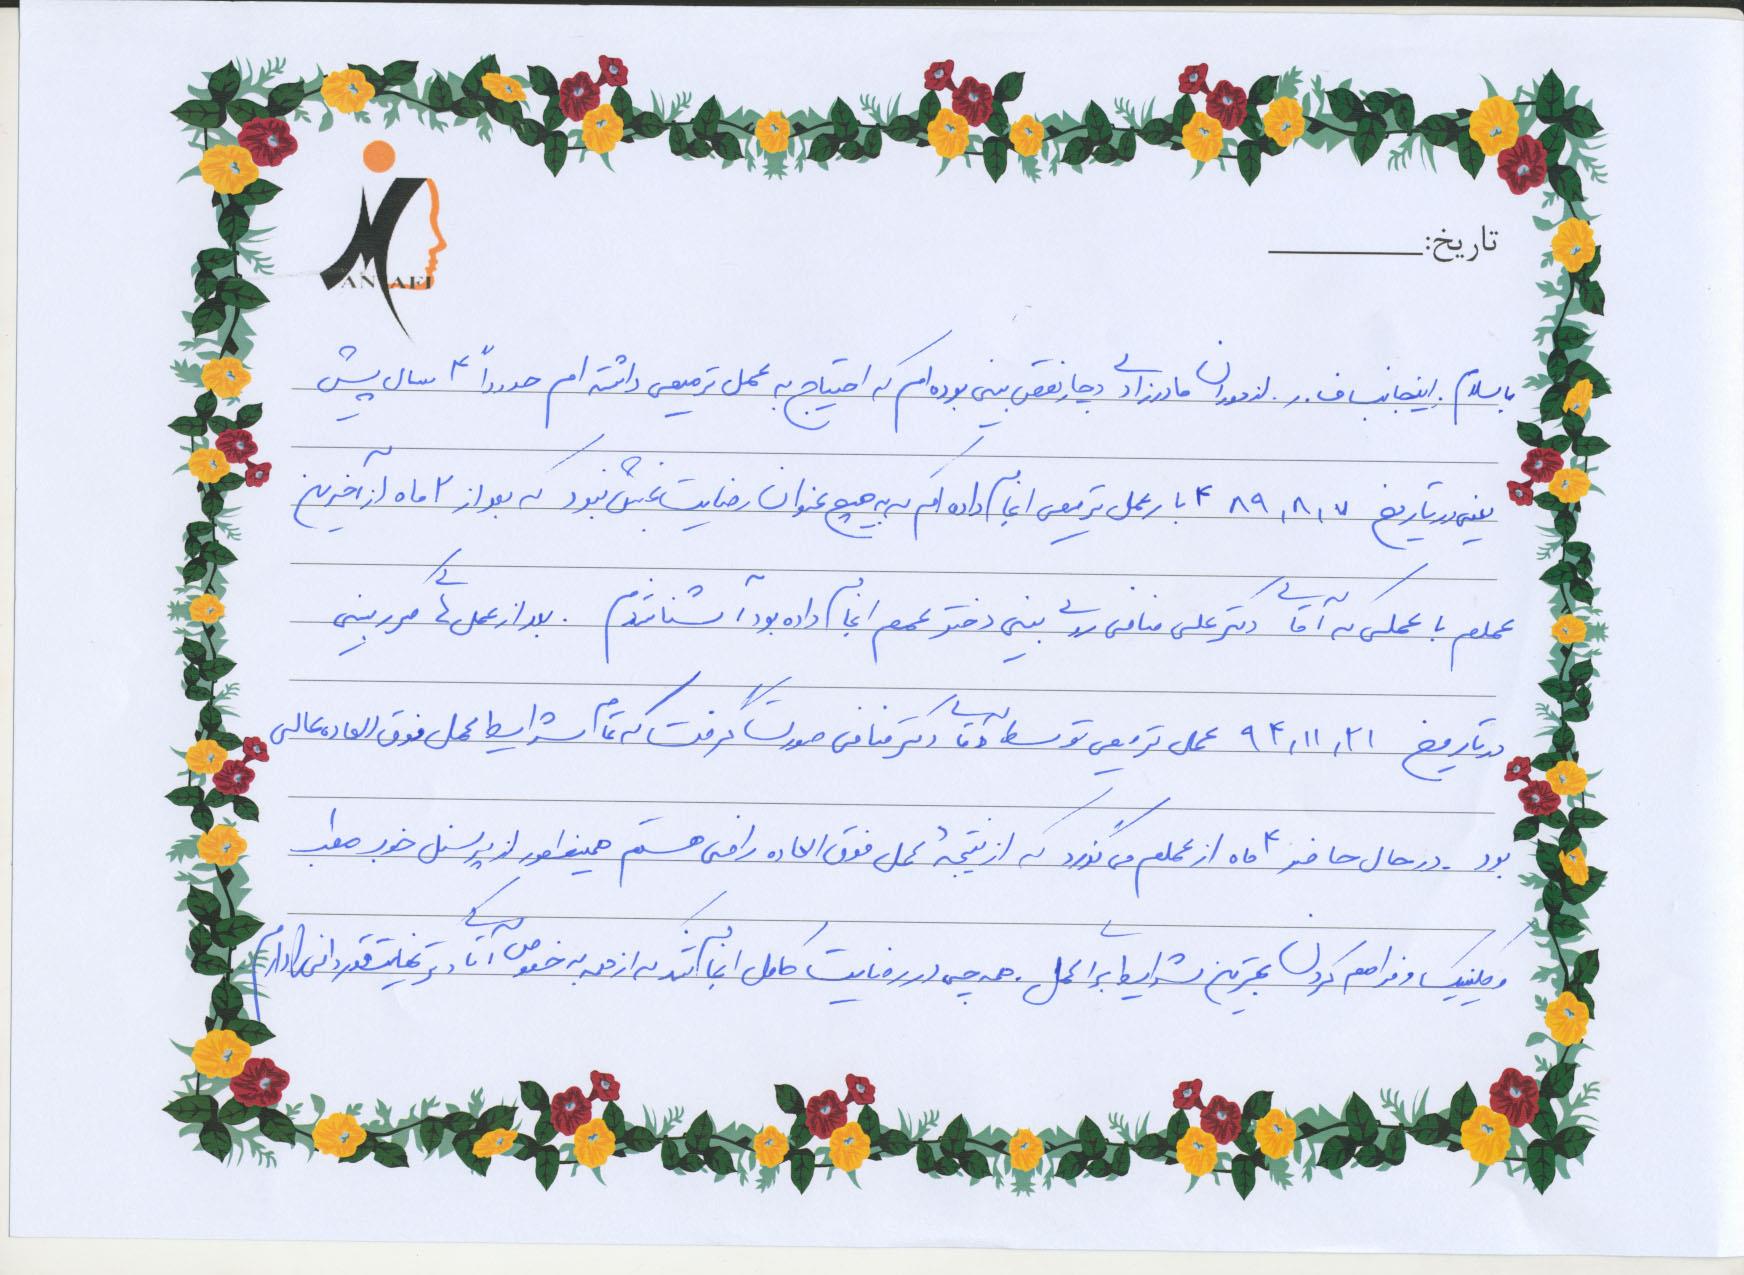 MANAFI
تاریخ:
با سلام. اینجانب ف. ر. از دوران مادرزادی دچار نقص بینی بوده‌ام که احتیاج به عمل ترمیمی داشته ام حدوداً ۴ سال پیش
یعنی در تاریخ ۸۹,۸,۷ ۴ بار عمل ترمیمی انجام داده‌ام که به هیچ عنوان رضایت بخش نبود که بعد از ۲ ماه از آخرین
عملم با عملی که آقای دکتر علی منافی روی بینی دختر عمم انجام داده بود آشنا شدم. بعد از عمل های مرور بینی
در تاریخ ۹۴,۱۱,۲۱ عمل ترمیمی توسط آقای دکتر منافی صورت گرفت که تمام شرایط عمل فوق العاده عالی
بود. در حال حاضر ۴ ماه از عملم می گذرد که از نتیجهٔ عمل فوق العاده راضی هستم همینطور از پرسنل خوب مطب
و کلینیک و فراهم کردن بهترین شرایط برا عمل. همه چی در رضایت کامل انجام شد که از همه به خصوص آقای دکتر نهایت قدردانی را دارم